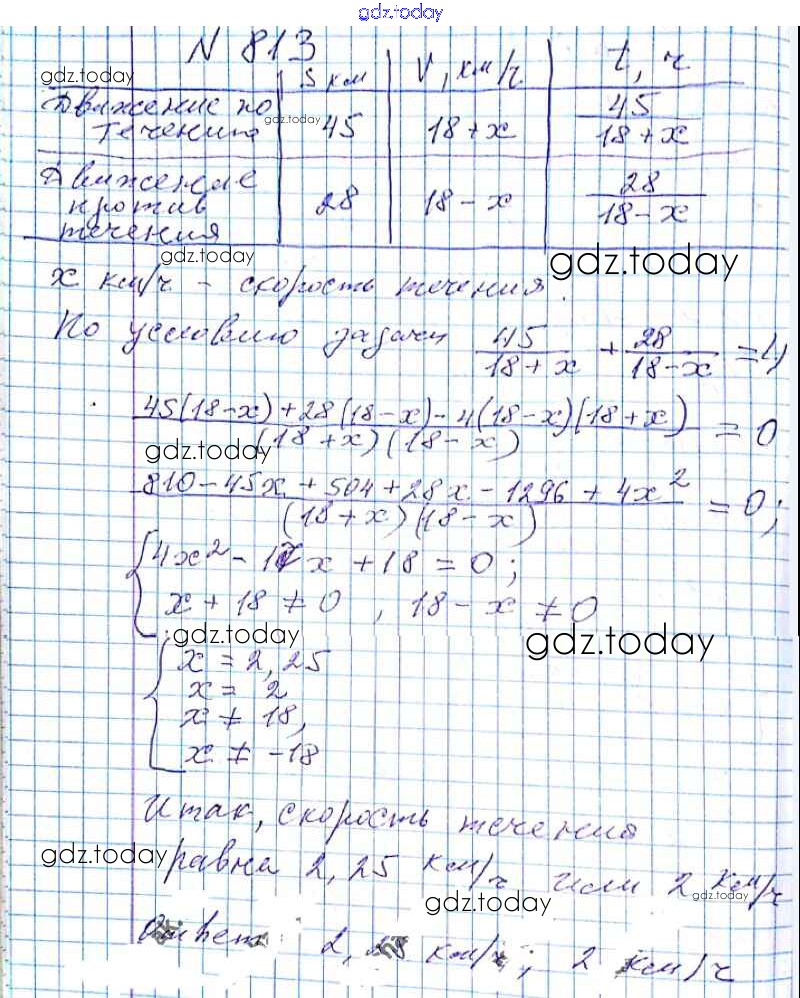 gdz.today
N 813
gdz.today
S км
V, км/ч
t, ч
Движение по
течению
gdz.today
45
18+x
45/(18+x)
Движение
против
течения
28
18-x
28/(18-x)
gdz.today
gdz.today
x км/ч - скорость течения.
По условию задачи 45/(18+x) + 28/(18-x) = 4
(45(18-x)+28(18-x)-4(18-x)(18+x))/((18+x)(18-x)) = 0
gdz.today
(810-45x+504+28x-1296+4x²)/((18+x)(18-x)) = 0;
4x²-17x+18=0;
x+18≠0, 18-x≠0
gdz.today
gdz.today
x = 2,25
x = 2
x ≠ 18,
x ≠ -18
Итак, скорость течения
gdz.today
равна 2,25 км/ч или 2 км/ч
gdz.today
gdz.today
Ответ: 2, км/ч; 2 км/ч